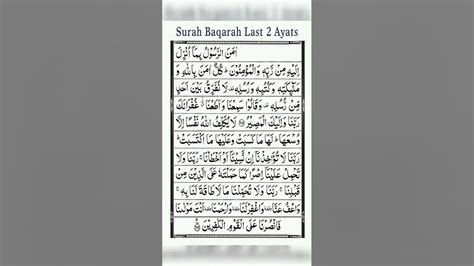 Surah Baqarah Last 2 Ayats
اٰمَنَ الرَّسُوْلُ بِمَاۤ اُنْزِلَ
اِلَيْهِ مِنْ رَّبِّهٖ وَالْمُؤْمِنُوْنَ ؕ كُلٌّ اٰمَنَ بِاللّٰهِ وَ
مَلٰٓئِكَتِهٖ وَكُتُبِهٖ وَرُسُلِهٖ ۟ لَا نُفَرِّقُ بَيْنَ اَحَدٍ
مِّنْ رُّسُلِهٖ ۟ وَقَالُوْا سَمِعْنَا وَاَطَعْنَا ٭۫ غُفْرَانَكَ
رَبَّنَا وَاِلَيْكَ الْمَصِيْرُ ۝ لَا يُكَلِّفُ اللّٰهُ نَفْسًا اِلَّا
وُسْعَهَا ؕ لَهَا مَا كَسَبَتْ وَعَلَيْهَا مَا اكْتَسَبَتْ ؕ
رَبَّنَا لَا تُؤَاخِذْنَاۤ اِنْ نَّسِيْنَاۤ اَوْ اَخْطَاْنَا ۚ رَبَّنَا وَلَا
تَحْمِلْ عَلَيْنَاۤ اِصْرًا كَمَا حَمَلْتَهٗ عَلَى الَّذِيْنَ مِنْ
قَبْلِنَا ۚ رَبَّنَا وَلَا تُحَمِّلْنَا مَا لَا طَاقَةَ لَنَا بِهٖ ۚ
وَاعْفُ عَنَّا ۥ وَاغْفِرْ لَنَا ۥ وَارْحَمْنَا ۥ اَنْتَ مَوْلٰىنَا
فَانْصُرْنَا عَلَى الْقَوْمِ الْكٰفِرِيْنَ ۝